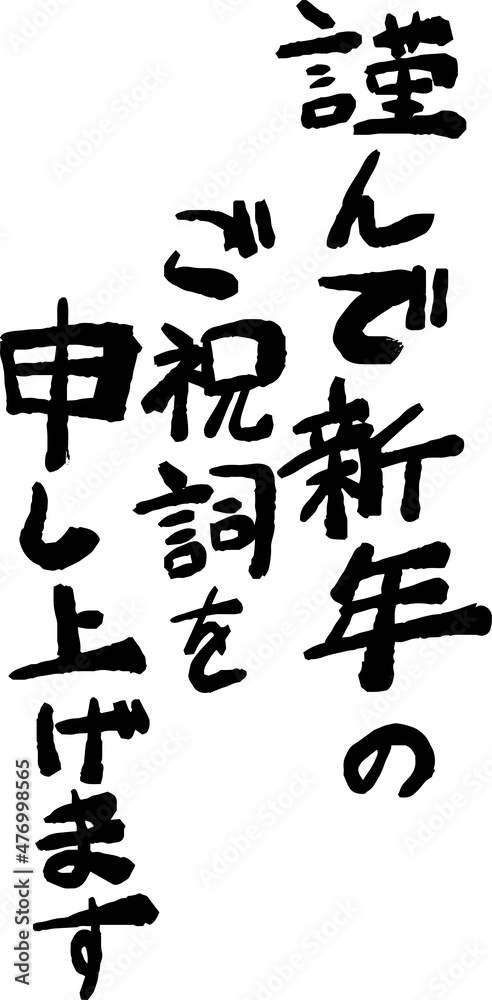 謹んで新年の
ご祝詞を
申し上げます
Adobe Stock | #476998565